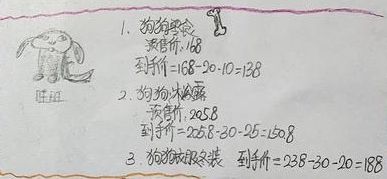 1. 狗狗零食
预售价,168
到手价=168-20-10=138
2. 狗狗沐浴露
预售价,205.8
到手价=205.8-30-25=150.8
3. 狗狗衣服冬装 到手价=238-30-20=188